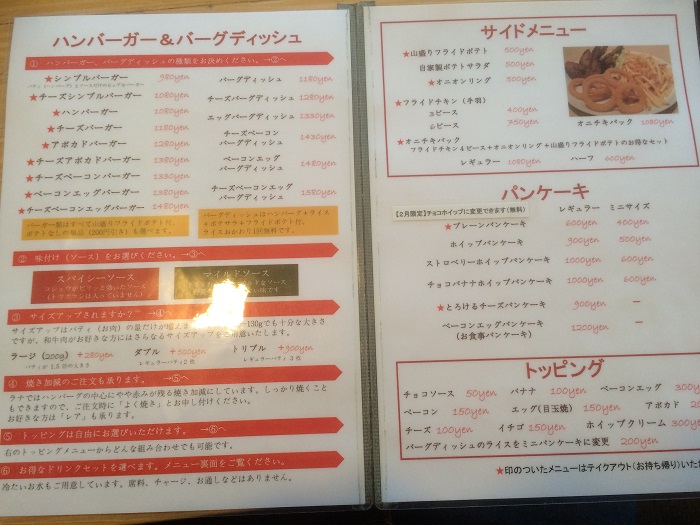 ハンバーガー＆バーグディッシュ
① ハンバーガー、バーグディッシュの種類をお決めください。→②へ
★シンプルバーガー 980yen
★チーズシンプルバーガー 1080yen
★ハンバーガー 1080yen
★チーズバーガー 1180yen
★アボカドバーガー 1280yen
★チーズアボカドバーガー 1380yen
★チーズベーコンバーガー 1330yen
★ベーコンエッグバーガー 1380yen
★チーズベーコンエッグバーガー 1480yen
バーガー類はすべて山盛りフライドポテト付。
ポテトなしの単品（200円引き）も選べます。
バーグディッシュ 1180yen
チーズバーグディッシュ 1280yen
エッグバーグディッシュ 1330yen
チーズベーコン
バーグディッシュ 1430yen
ベーコンエッグ
バーグディッシュ 1480yen
チーズベーコンエッグ
バーグディッシュ 1580yen
バーグディッシュはハンバーグ+ライス
+ポテサラ+フライドポテト付。
ライスおかわり1回無料です。
② 味付け（ソース）をお選びください。→③へ
スパイシーソース
マイルドソース
③ サイズアップされますか？ →④へ
サイズアップはパティ（お肉）の量だけが増え
130gでも十分な大きさ
ですが、和牛肉がお好きな方にはさらなるサイズアップをご用意いたします。
ラージ（200g） +280yen ダブル +500yen トリプル +900yen
パティが1.5倍の大きさ レギュラーパティ2枚 レギュラーパティ3枚
④ 焼き加減のご注文も承ります。 →⑤へ
ラナではハンバーグの中心にやや赤みが残る焼き加減にしています。しっかり焼くこと
もできますので、ご注文時に「よく焼き」とお申し付けください。
お好きな方は「レア」も承ります。
⑤ トッピングは自由にお選びいただけます。 →⑥へ
右のトッピングメニューからどんな組み合わせでも可能です。
⑥ お得なドリンクセットを選べます。メニュー裏面をご覧ください。
冷たいお水もご用意しています。席料、チャージ、お通しなどはありません。
サイドメニュー
★山盛りフライドポテト 500yen
自家製ポテトサラダ 500yen
★オニオンリング 500yen
★フライドチキン（手羽）
3ピース 400yen
6ピース 750yen
オニチキパック 1080yen
★オニチキパック
フライドチキン4ピース+オニオンリング+山盛りフライドポテトのお得なセット
レギュラー 1080yen ハーフ 600yen
パンケーキ
【2月限定】チョコホイップに変更できます（無料） レギュラー ミニサイズ
★プレーンパンケーキ 600yen 400yen
ホイップパンケーキ 900yen 500yen
ストロベリーホイップパンケーキ 1000yen 600yen
チョコバナナホイップパンケーキ 1000yen 600yen
★とろけるチーズパンケーキ 900yen ー
ベーコンエッグパンケーキ 1200yen ー
（お食事パンケーキ）
トッピング
チョコソース 50yen バナナ 100yen ベーコンエッグ 300y
ベーコン 150yen エッグ（目玉焼） 150yen アボカド
チーズ 100yen イチゴ 150yen ホイップクリーム 300y
バーグディッシュのライスをミニパンケーキに変更 200yen
★印のついたメニューはテイクアウト（お持ち帰り）いた